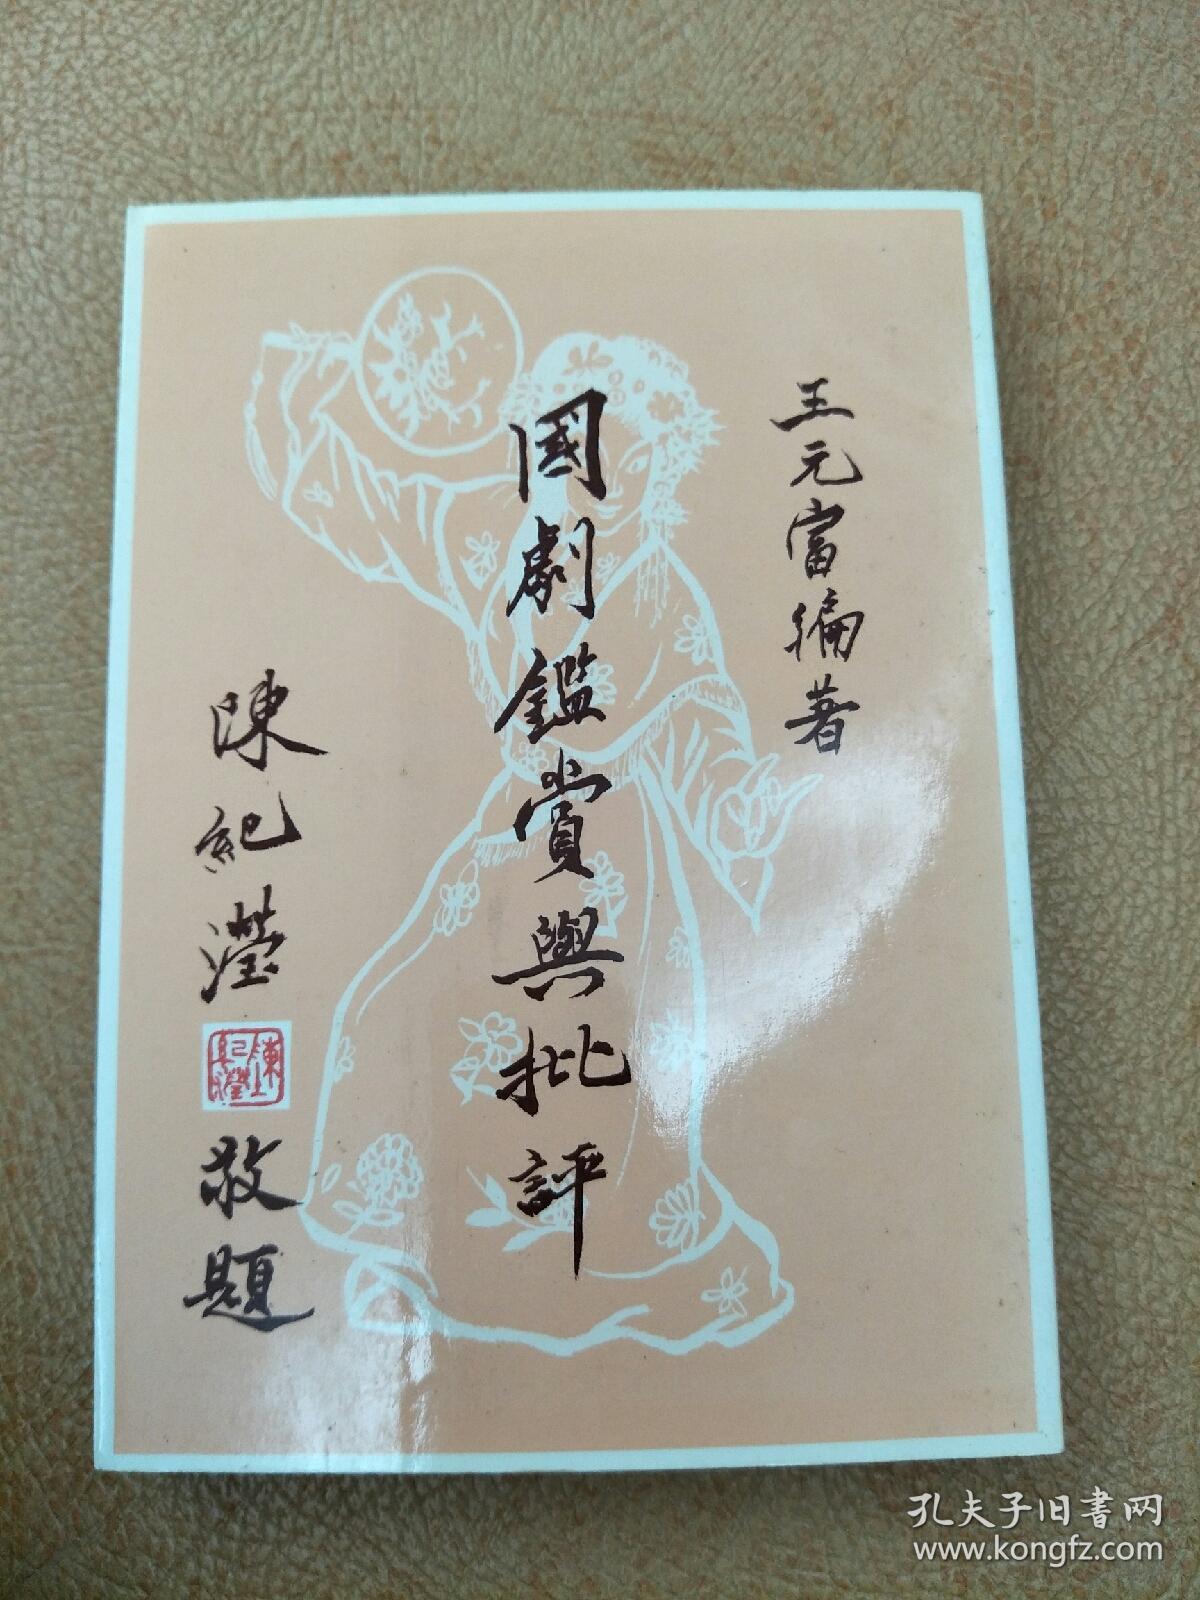 王元富编著
國劇鑑賞與批評
陳紀瀅
陳紀瀅
敬題
孔夫子旧書网
www.kongfz.com